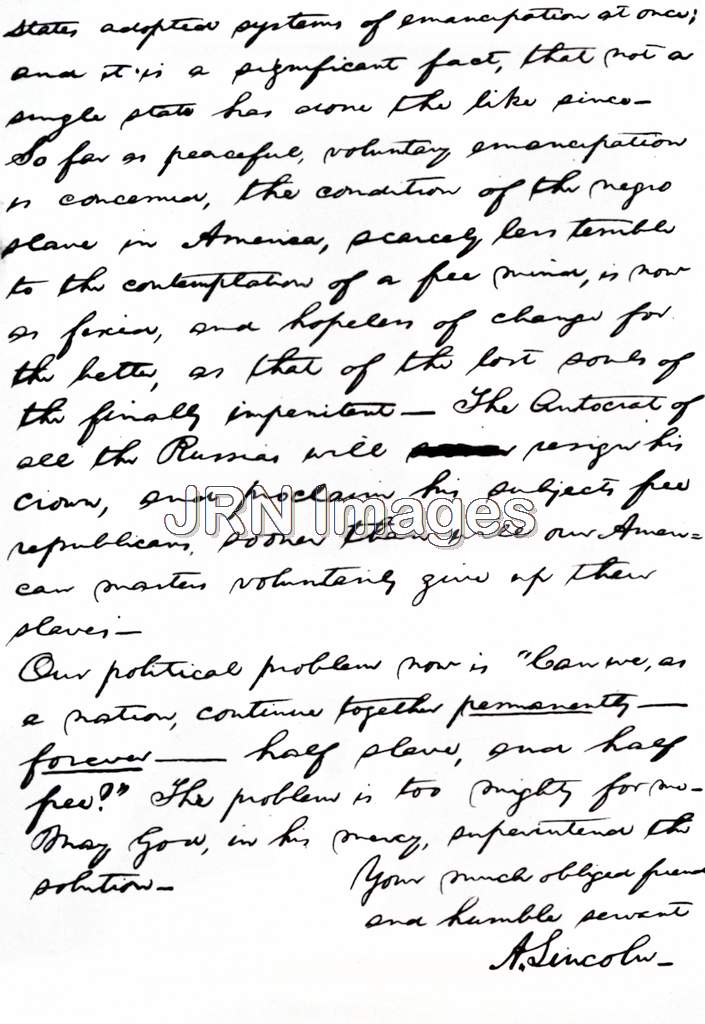 States adopted systems of emancipation at once;
and it is a significant fact, that not a
single state has done the like since—
So far as peaceful, voluntary emancipation
is concerned, the condition of the negro
slave in America, scarcely less terrible
to the contemplation of a free mind, is now
as fixed, and hopeless of change for
the better, as that of the lost souls of
the finally impenitent— The Autocrat of
all the Russias will resign his
crown, and proclaim his subjects free
JRN Images
republicans, sooner than will our Ameri=
can masters voluntarily give up their
slaves—
Our political problem now is "Can we, as
a nation, continue together permanently—
forever— half slave, and half
free?" The problem is too mighty for me—
May God, in his mercy, superintend the
solution—
Your much obliged friend
and humble servant
A. Lincoln—